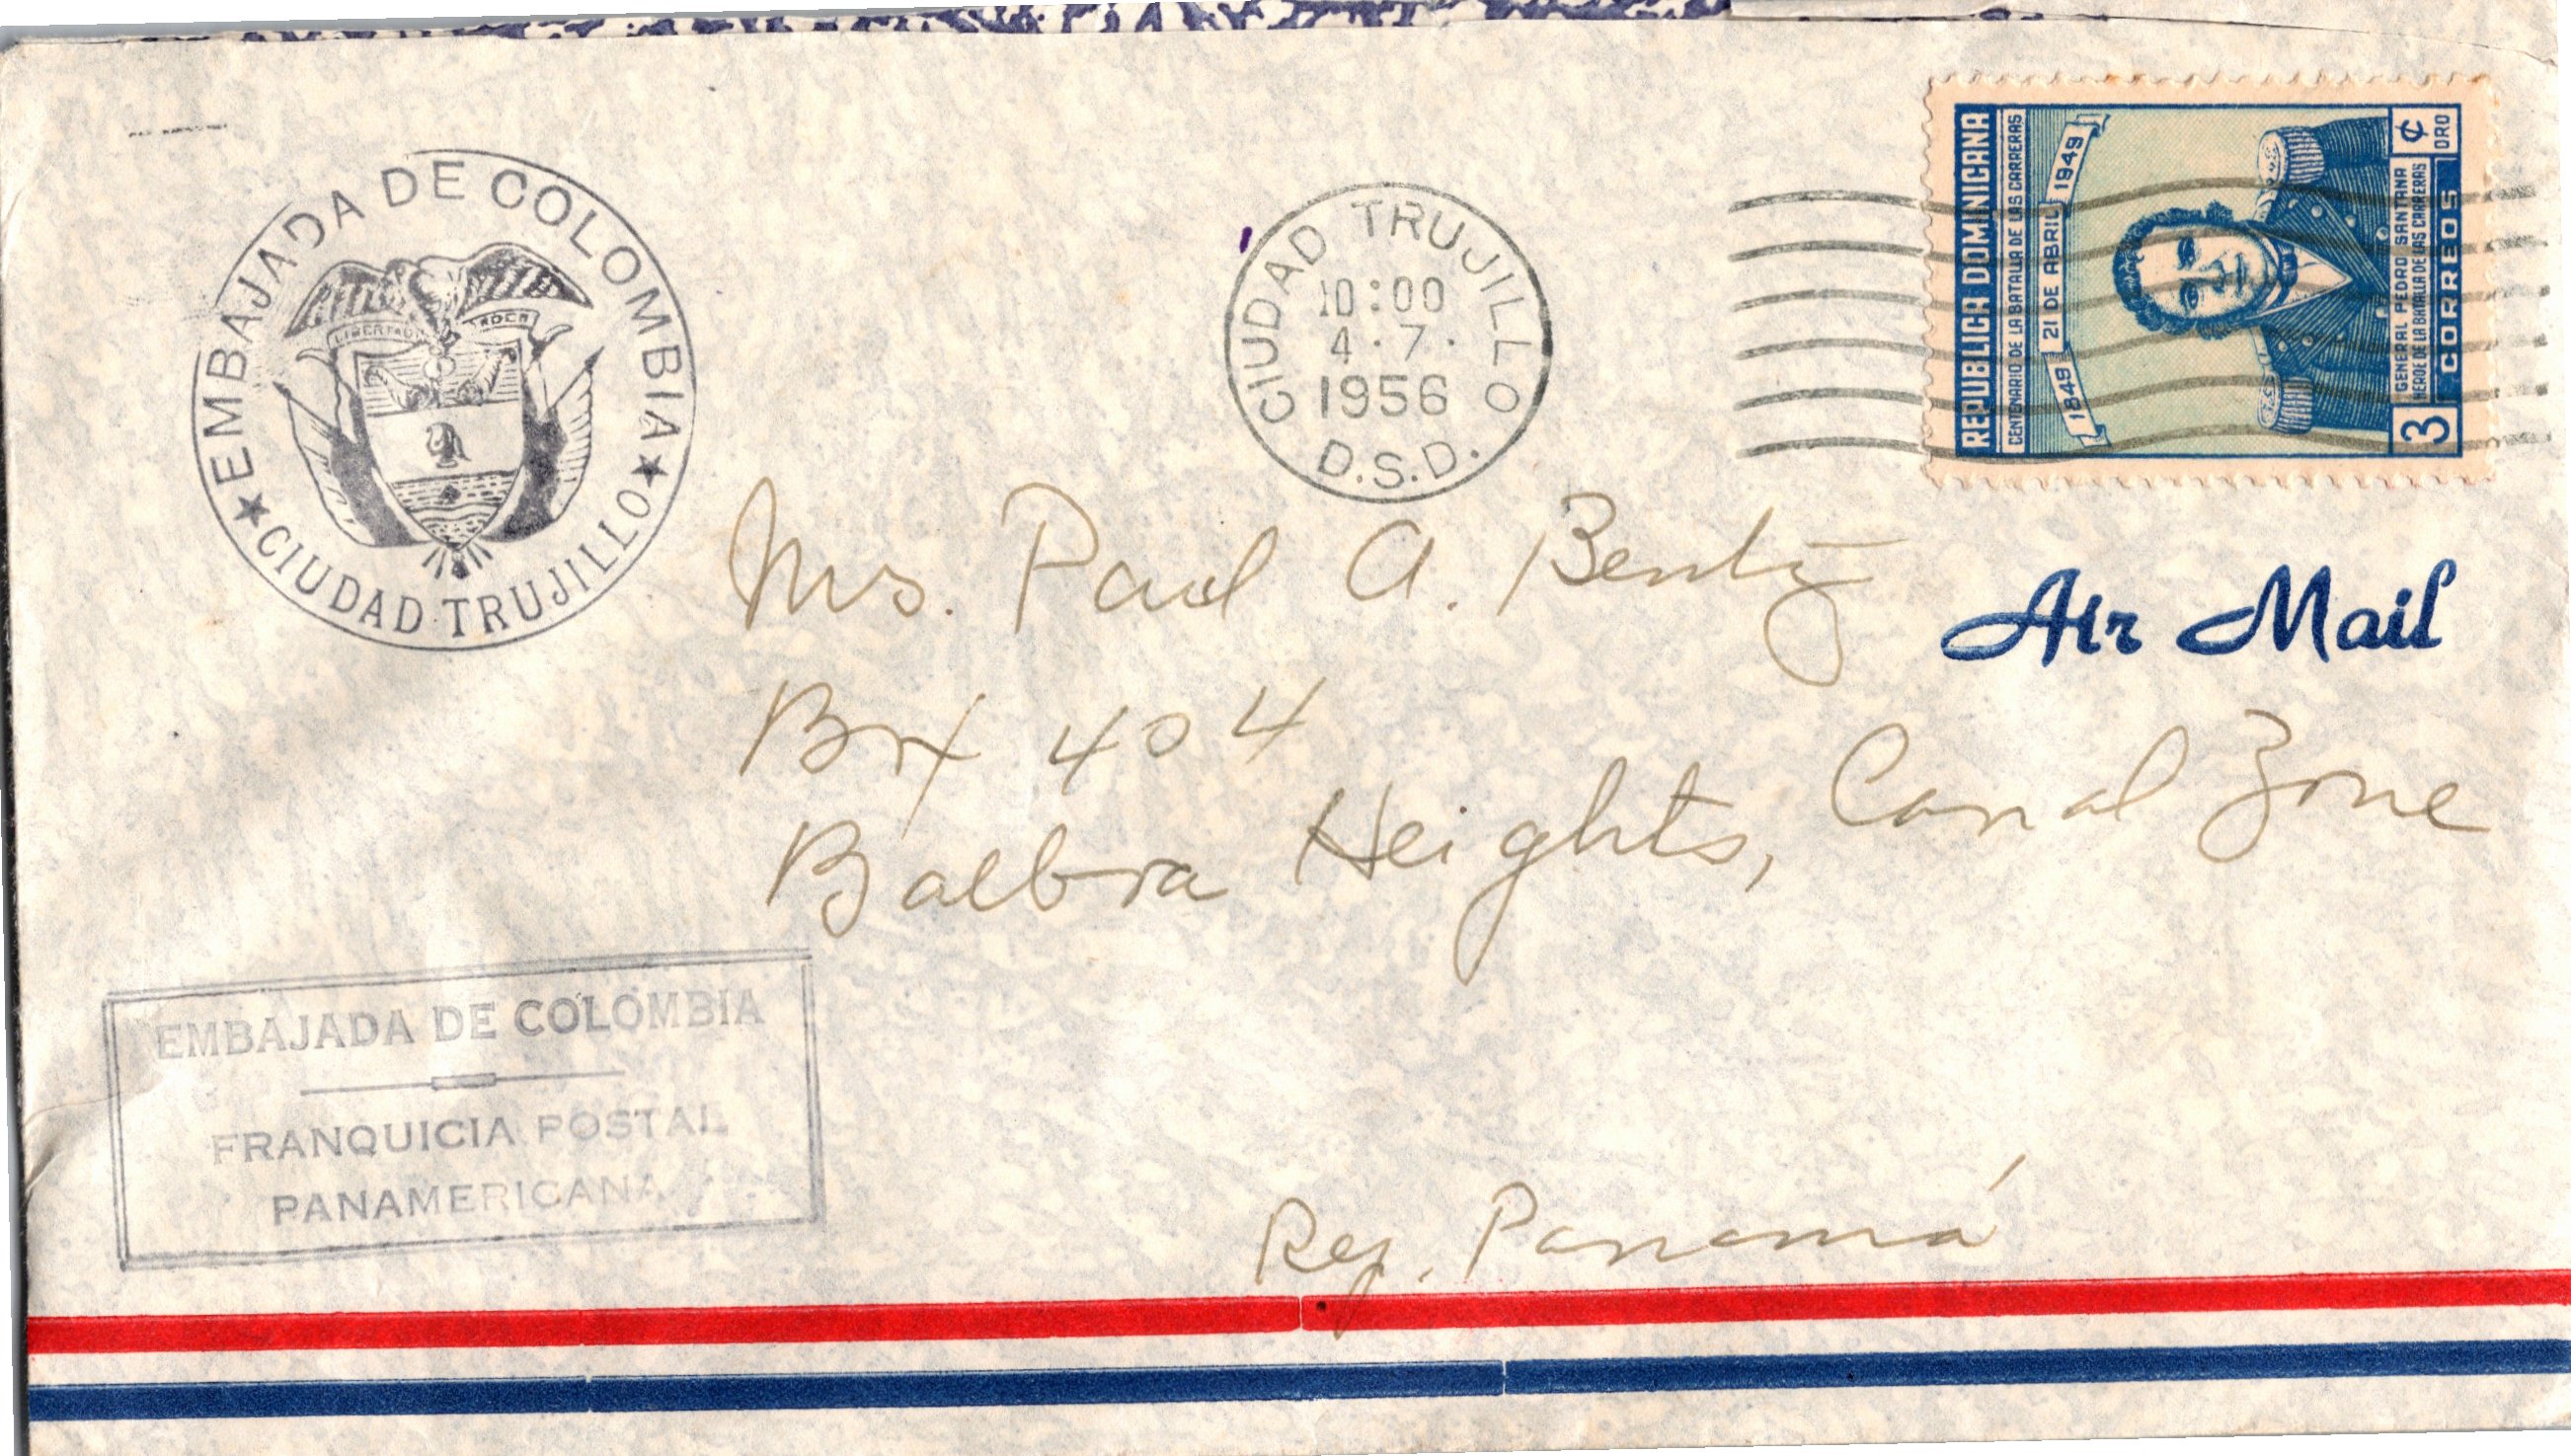 EMBAJADA DE COLOMBIA
LIBERTAD
ORDEN
★ CIUDAD TRUJILLO ★
CIUDAD TRUJILLO
10:00
4·7·
1956
D.S.D.
REPUBLICA DOMINICANA
CENTENARIO DE LA BATALLA DE LAS CARRERAS
1849 21 DE ABRIL 1949
GENERAL PEDRO SANTANA
HEROE DE LA BATALLA DE LAS CARRERAS
3 CORREOS ¢ ORO
Air Mail
Mrs. Paul A. Bentz
Box 404
Balboa Heights, Canal Zone
EMBAJADA DE COLOMBIA
FRANQUICIA POSTAL
PANAMERICANA
Rep. Panamá